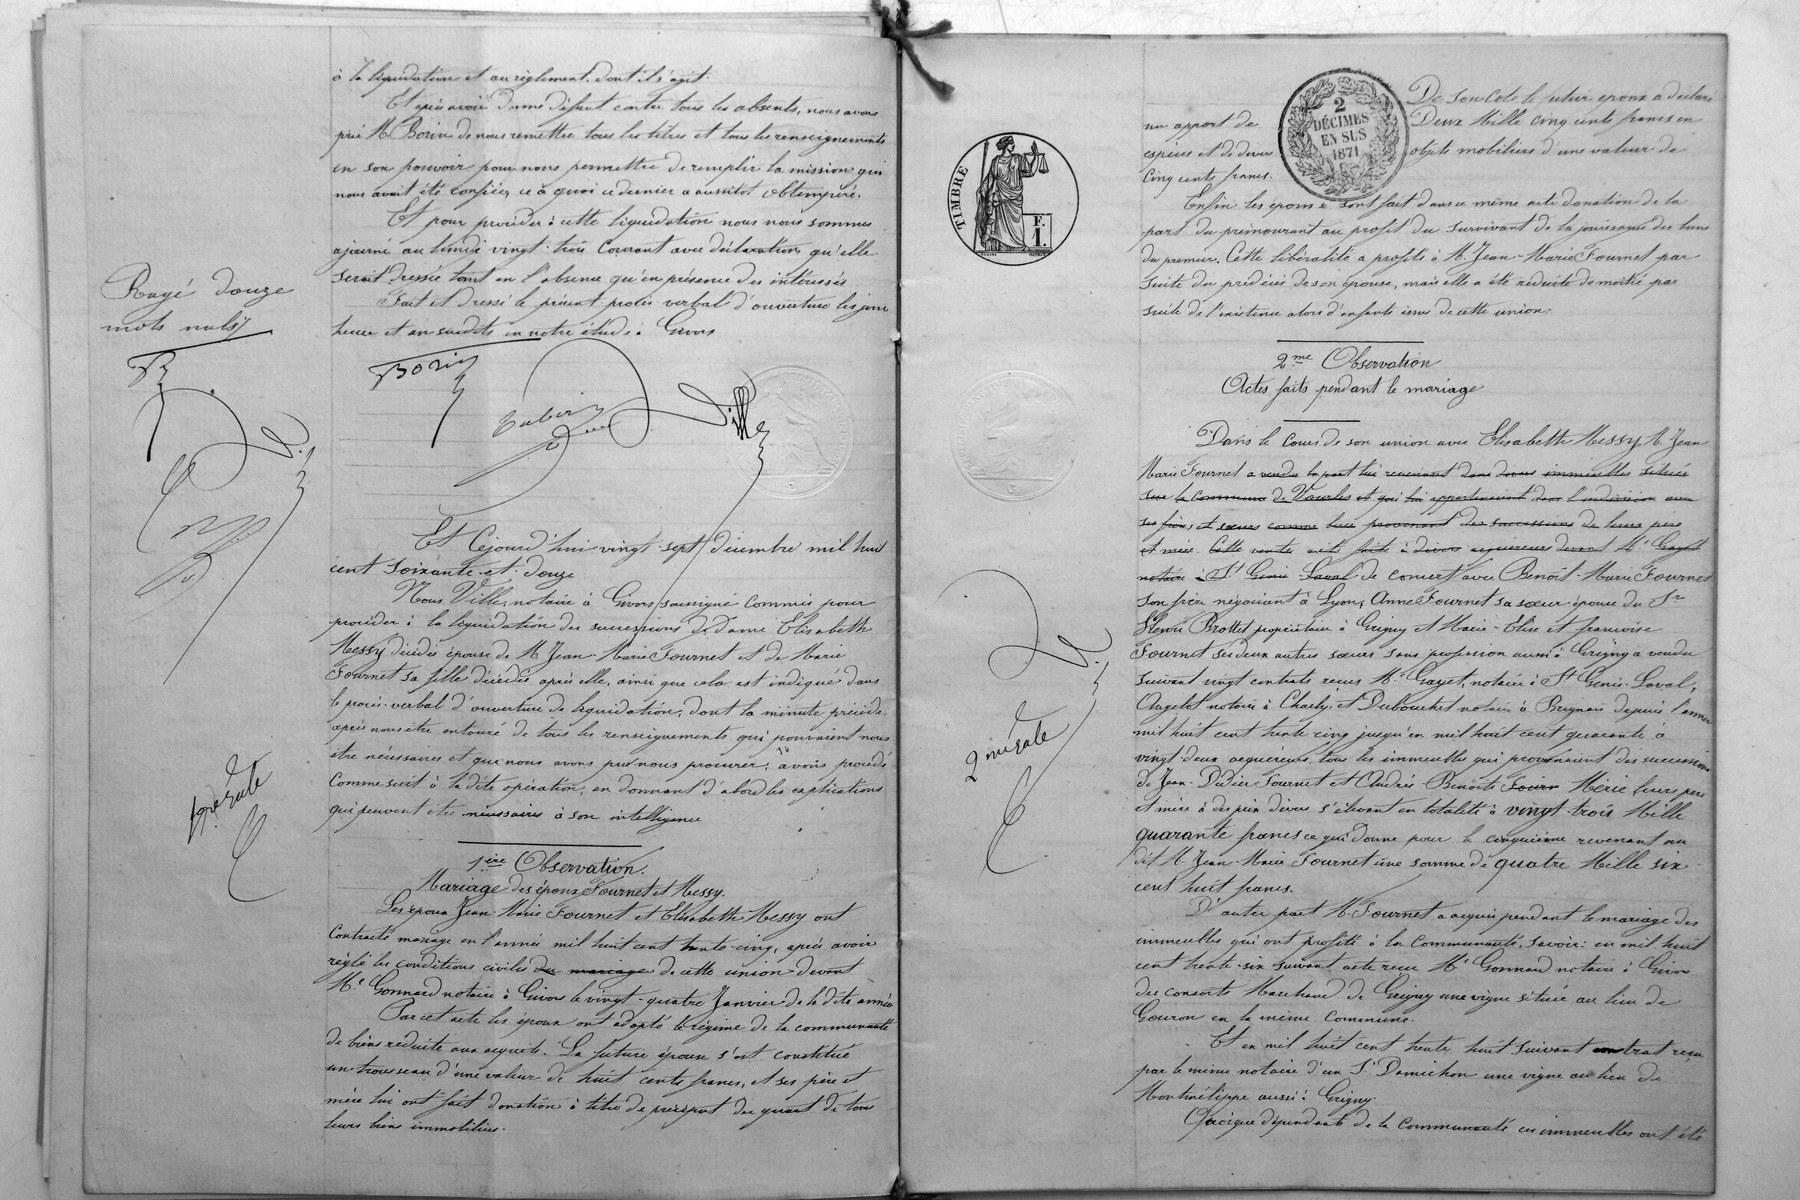 à la liquidation et au règlement dont il s'agit.
Et après avoir donné défaut contre tous les absents, nous avons
prié M. Borin de nous remettre tous les titres et tous les renseignements
en son pouvoir pour nous permettre de remplir la mission qui
nous avait été confiée, ce à quoi ce dernier a aussitôt obtempéré.
Et pour procéder à cette liquidation nous nous sommes
ajourné au lundi vingt-trois courant avec déclaration qu'elle
serait dressée tant en l'absence qu'en présence des intéressés
Fait et dressé le présent procès-verbal d'ouverture les jour
heure et an susdits en notre étude à Givors
Rayé douze
mots nuls
Borin
Ville
Et Cejourd'hui vingt-sept décembre mil huit
cent soixante-et-douze
Nous Ville, notaire à Givors soussigné commis pour
procéder à la liquidation des successions de Dame Elisabeth
Messy décédée épouse de M. Jean-Marie Fournet et de Marie
Fournet sa fille décédée après elle, ainsi que cela est indiqué dans
le procès-verbal d'ouverture de liquidation, dont la minute précède,
après nous être entouré de tous les renseignements qui pouvaient nous
être nécessaires et que nous avons pu nous procurer, avons procédé
comme suit à la dite opération, en donnant d'abord les explications
qui peuvent être nécessaires à son intelligence
1ère Observation.
Mariage des époux Fournet et Messy.
Les époux Jean-Marie Fournet et Elisabeth Messy ont
contracté mariage en l'année mil huit cent trente-cinq, après avoir
réglé les conditions civiles du mariage de cette union devant
Me Gonnard notaire à Givors le vingt-quatre Janvier de la dite année
Par cet acte les époux ont adopté le régime de la communauté
de biens réduite aux acquets. La future épouse s'est constitué
un trousseau d'une valeur de huit cents francs, et ses père et
mère lui ont fait donation à titre de préciput du quart de tous
leurs biens immobiliers.
TIMBRE
F. I.
2
DÉCIMES
EN SUS
1871
De son coté le futur époux a déclaré
un apport de Deux Mille cinq cents francs en
espèces et de divers objets mobiliers d'une valeur de
Cinq cents francs.
Enfin les époux se sont fait dans ce même acte donation de la
part du prémourant au profit du survivant de la jouissance des biens
du premier. Cette libéralité a profité à M. Jean-Marie Fournet par
suite du prédécès de son épouse, mais elle a été réduite de moitié par
suite de l'existence alors d'enfants issus de cette union.
2me Observation
Actes faits pendant le mariage
Dans le cours de son union avec Elisabeth Messy M. Jean
Marie Fournet a vendu la part lui revenant dans divers immeubles situés
sur la Commune de Vourles et qui lui appartenaient dans l'indivision avec
ses frères et sœurs comme leur provenant des successions de leurs père
et mère. Cette vente a été faite à divers acquéreurs devant Me Gayet
notaire à St Genis-Laval de concert avec Benoît-Marie Fournet
son frère négociant à Lyon, Anne Fournet sa sœur épouse du Sr
Henri Brottet propriétaire à Grigny et Marie-Elise et francoise
Fournet ses deux autres sœurs sans profession aussi à Grigny a vendu
suivant vingt contrats reçus Me Gayet, notaire à St Genis-Laval,
notaire à Charly, et Dubouchet notaire à Brignais depuis l'année
mil huit cent trente cinq jusqu'en mil huit cent quarante à
vingt-deux acquéreurs, tous les immeubles qui provenaient des successions
de Jean-Didier Fournet et Benoîte leurs père
et mère à des prix divers s'élevant en totalité à vingt-trois Mille
quarante francs ce qui donne pour le cinquième revenant au
dit M. Jean-Marie Fournet une somme de quatre Mille six
cent huit francs.
D'autre part M. Fournet a acquis pendant le mariage des
immeubles qui ont profité à la Communauté, savoir: en mil huit
cent trente-six suivant acte reçu Me Gonnard notaire à Givors
des consorts Marchand de Grigny une vigne située au lieu de
Gouron en la même commune.
Et en mil huit cent trente huit suivant contrat reçu
par le même notaire d'un Sr Damichon une vigne au lieu de
aussi à Grigny.
Quoique dépendants de la Communauté ces immeubles ont été